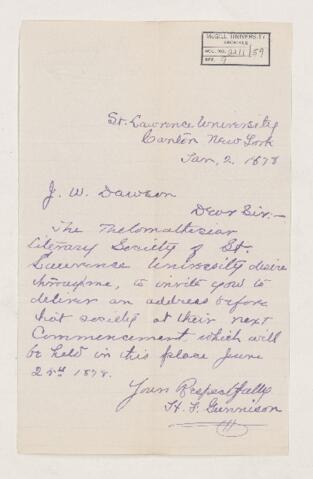 McGILL UNIVERSITY
ARCHIVES
ACC. NO. 2211/59
REF. 9
St. Lawrence University
Canton New York
Jan, 2, 1878
J. W. Dawson
Dear Sir:—
The Thelomathesian
Literary Society of St
Lawrence University desire
through me, to invite you to
deliver an address before
that society at their next
Commencement which will
be held in this place June
1878.
Yours Respectfully
H. F. Gunnison